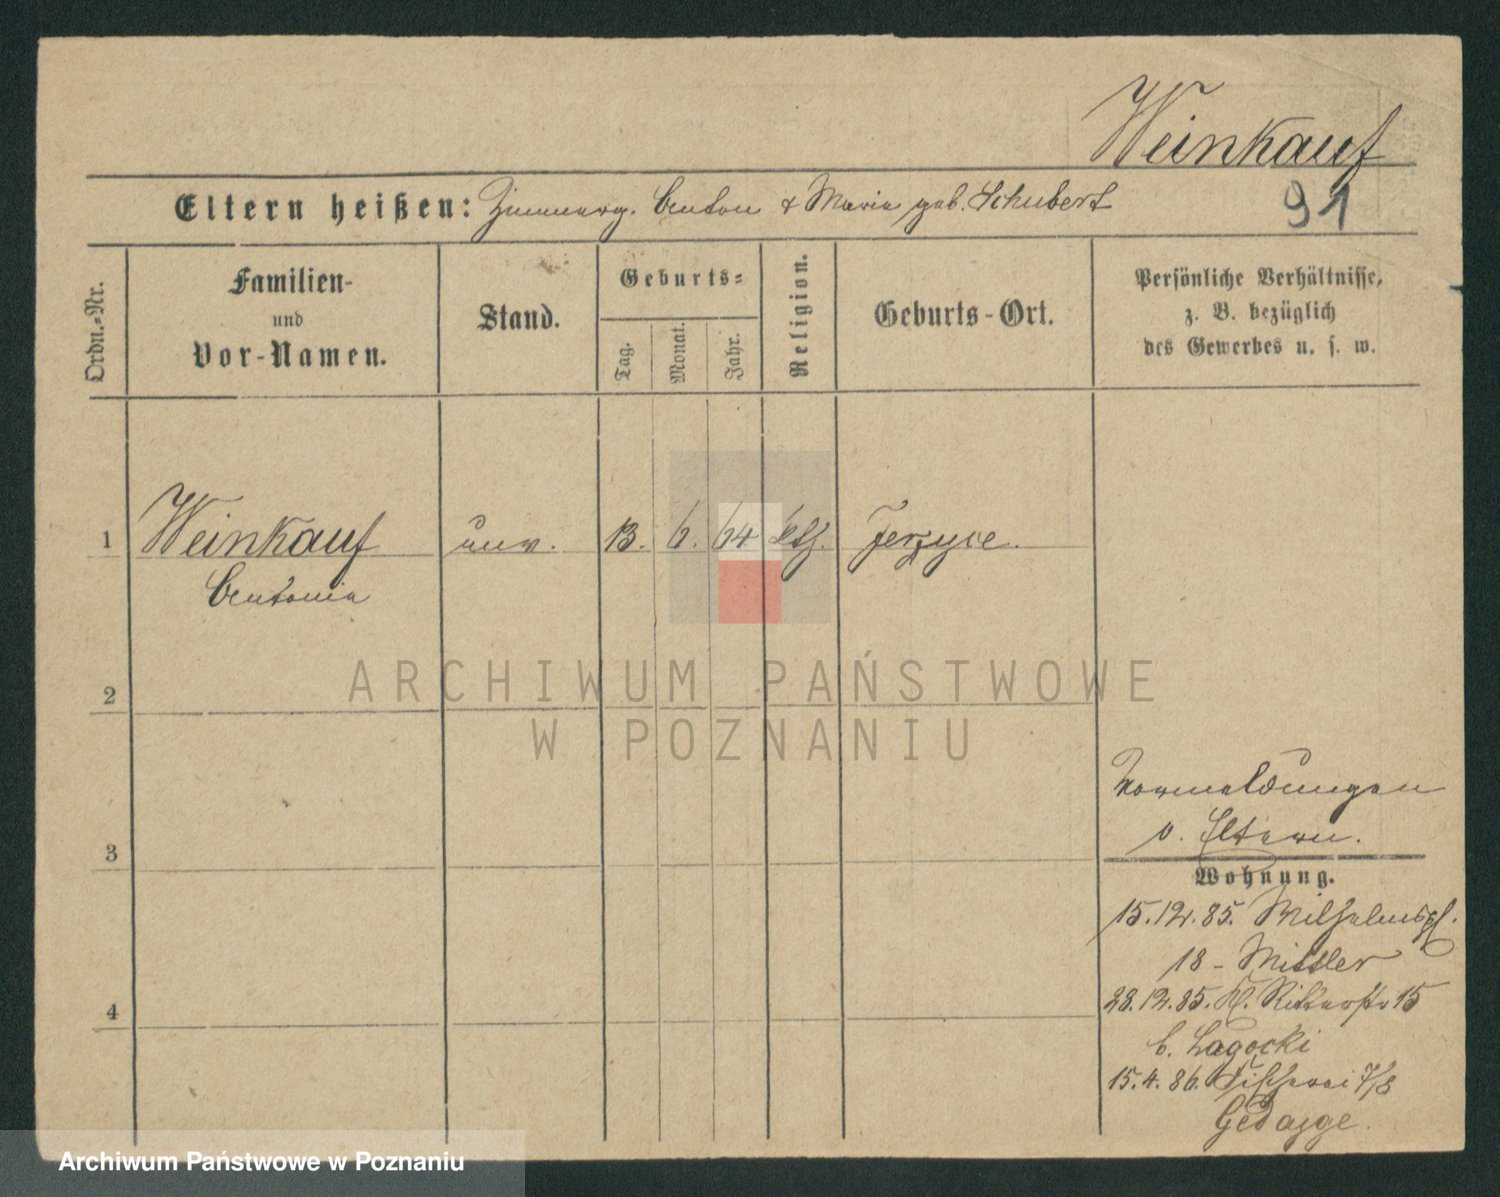 Weinkauf
Eltern heißen: Zimmerg. Anton & Marie geb. Schubert
91
Ordn.-Nr.
Familien-
und
Vor-Namen.
Stand.
Geburts-
Tag.
Monat.
Jahr.
Religion.
Geburts-Ort.
Persönliche Verhältnisse,
z. B. bezüglich
des Gewerbes u. s. w.
1 Weinkauf unv. 13. 6. 64 kth. Jerzyce.
Antonie
ARCHIWUM PAŃSTWOWE
W POZNANIU
2
3
4
Vormeldungen
v. Eltern.
Wohnung.
15.12.85. Wilhelmspl.
18 - Mittler
28.12.85. Kl. Ritterstr 15
b. Lagocki
15.4.86. Fischerei 7/8
Archiwum Państwowe w Poznaniu